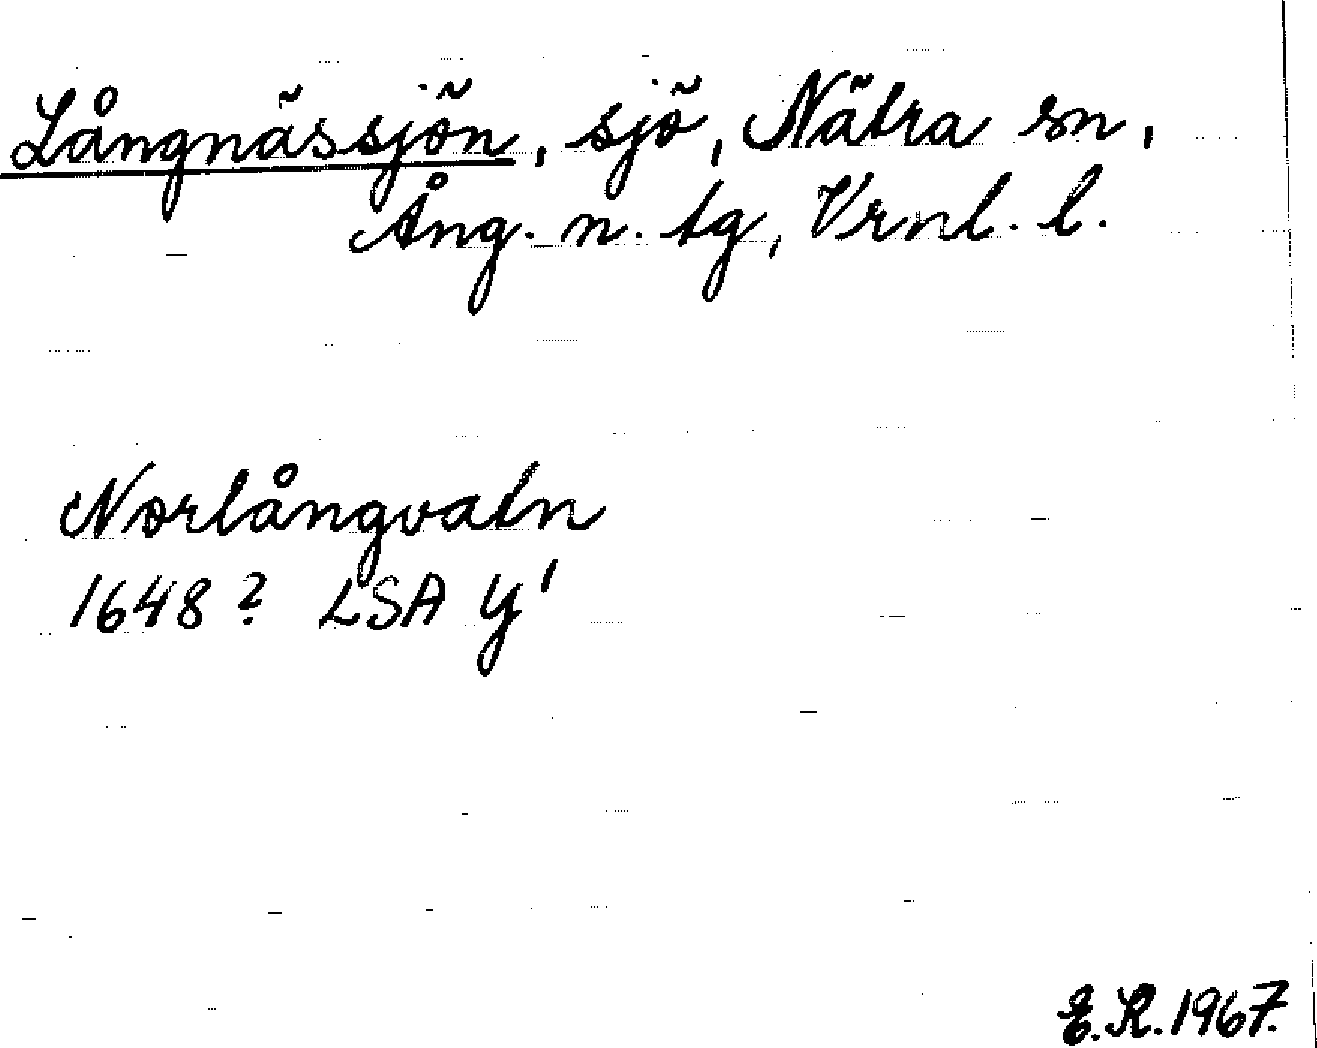 Långnässjön, sjö, Nätra sn,
Ång. n. tg, Vrnl. l.
Norlångvatn
1648? LSA Y¹
E.R. 1967.